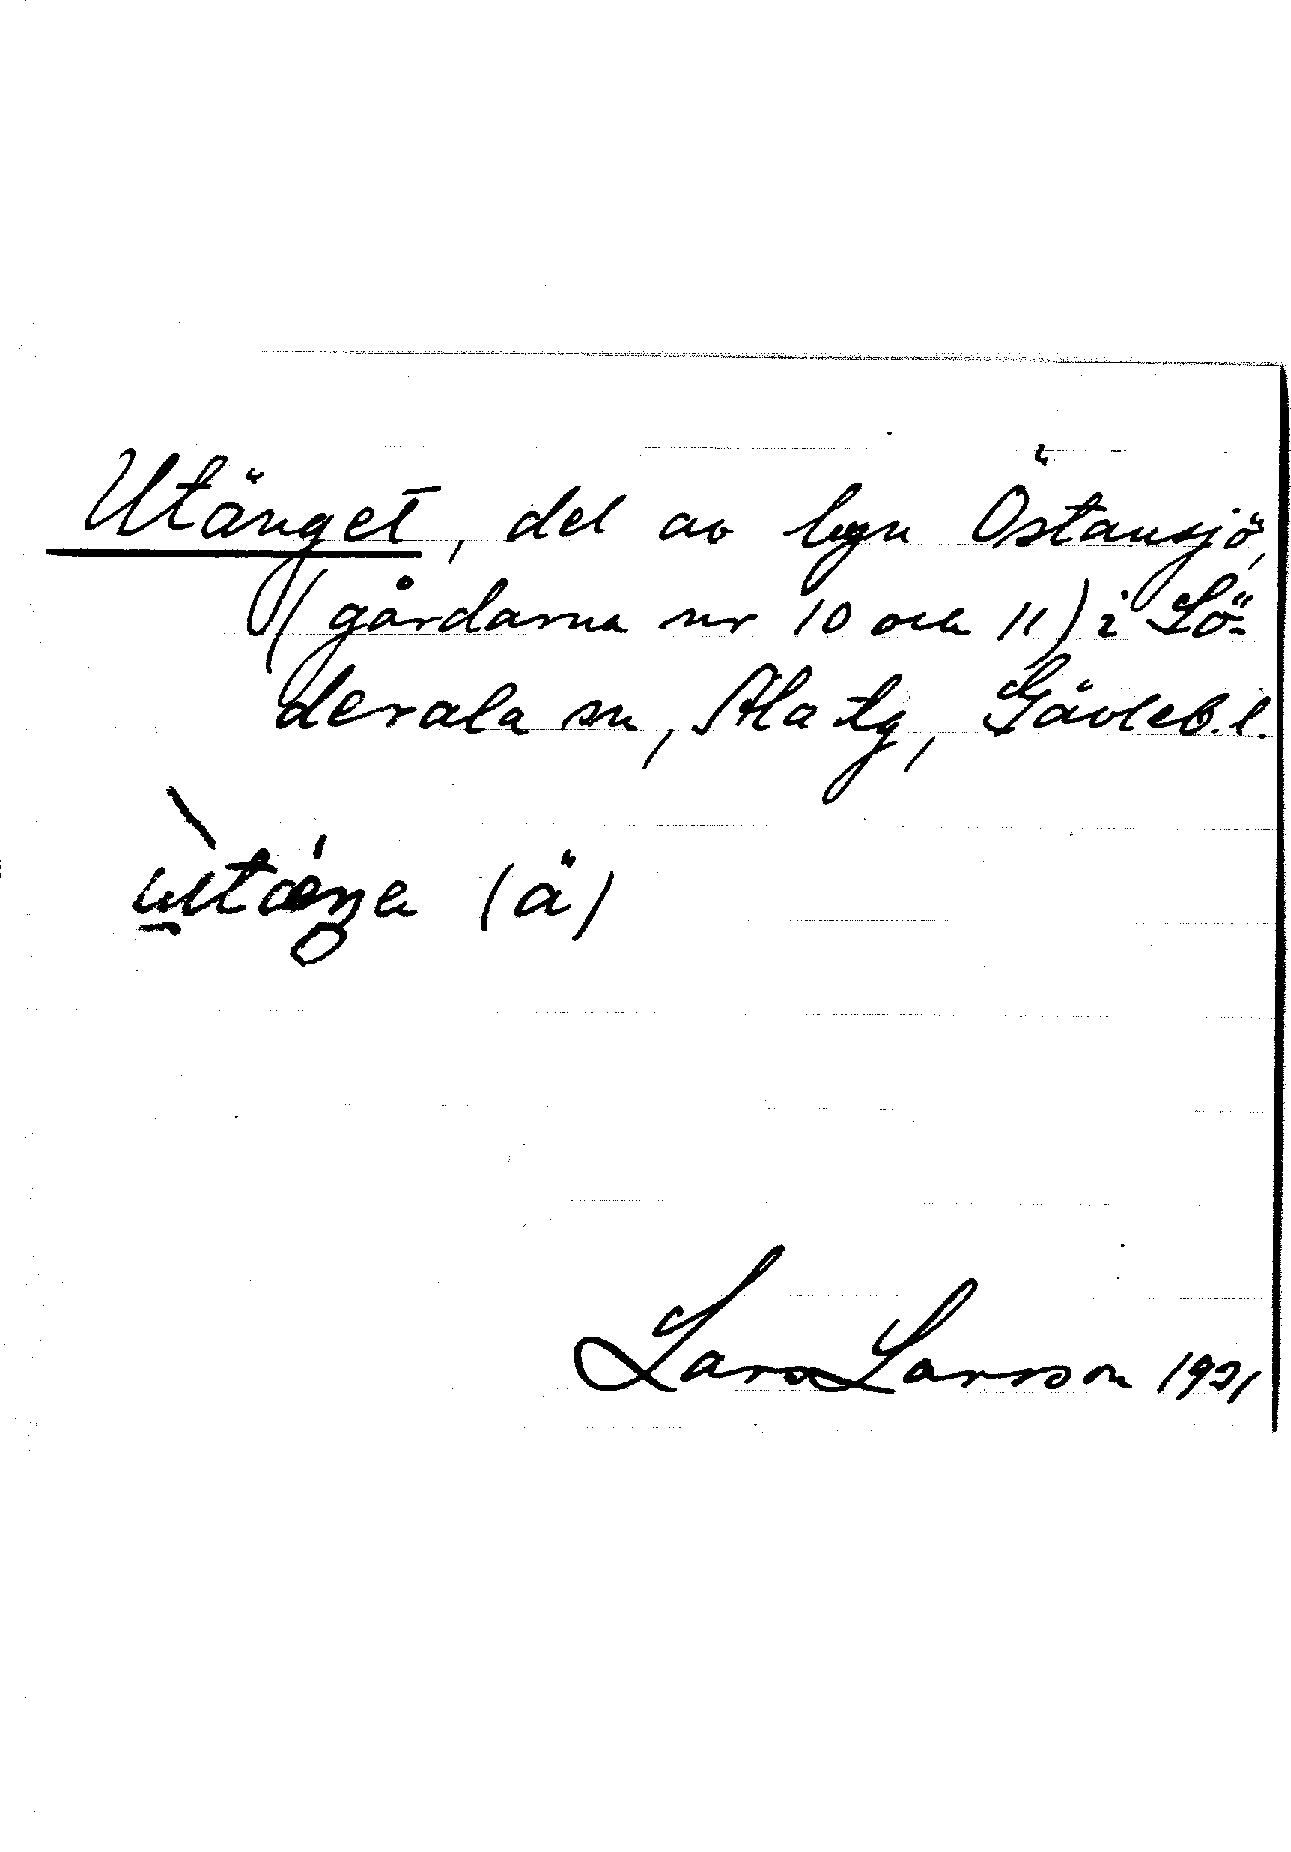 Utänget, del av byn Östansjö,
(gårdarna nr 10 och 11) i Sö-
derala sn, Ala tg, Gävleb. l.
(ä)
Lars Larsson 1921